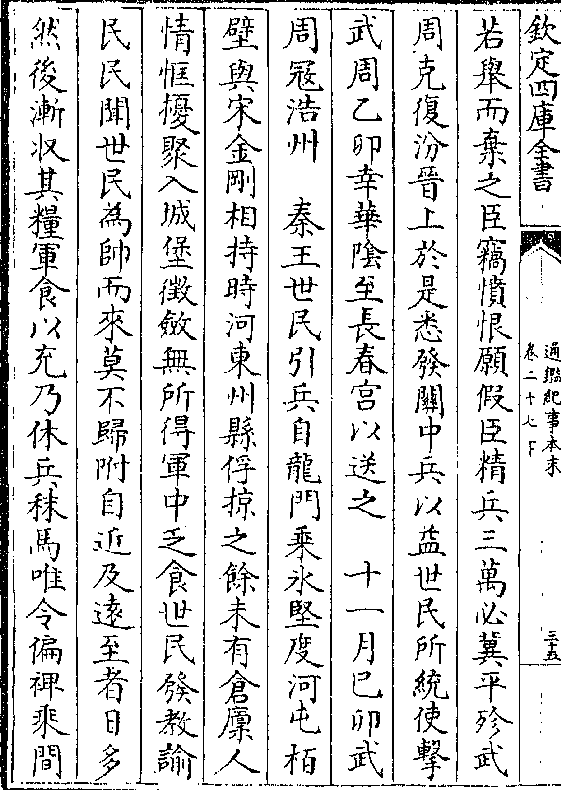 欽定四庫全書
通鑑紀事本末
卷二十七下
三十五
若舉而棄之臣竊憤恨願假臣精兵三萬必冀平殄武
周克復汾晉上於是悉發關中兵以益世民所統使擊
武周乙卯幸華陰至長春宮以送之　十一月己卯武
周冦浩州　秦王世民引兵自龍門乘氷堅度河屯栢
壁與宋金剛相持時河東州縣俘掠之餘未有倉廩人
情恇擾聚入城堡徵斂無所得軍中乏食世民發教諭
民民聞世民為帥而來莫不歸附自近及逺至者日多
然後漸收其糧軍食以充乃休兵秣馬唯令偏裨乘間